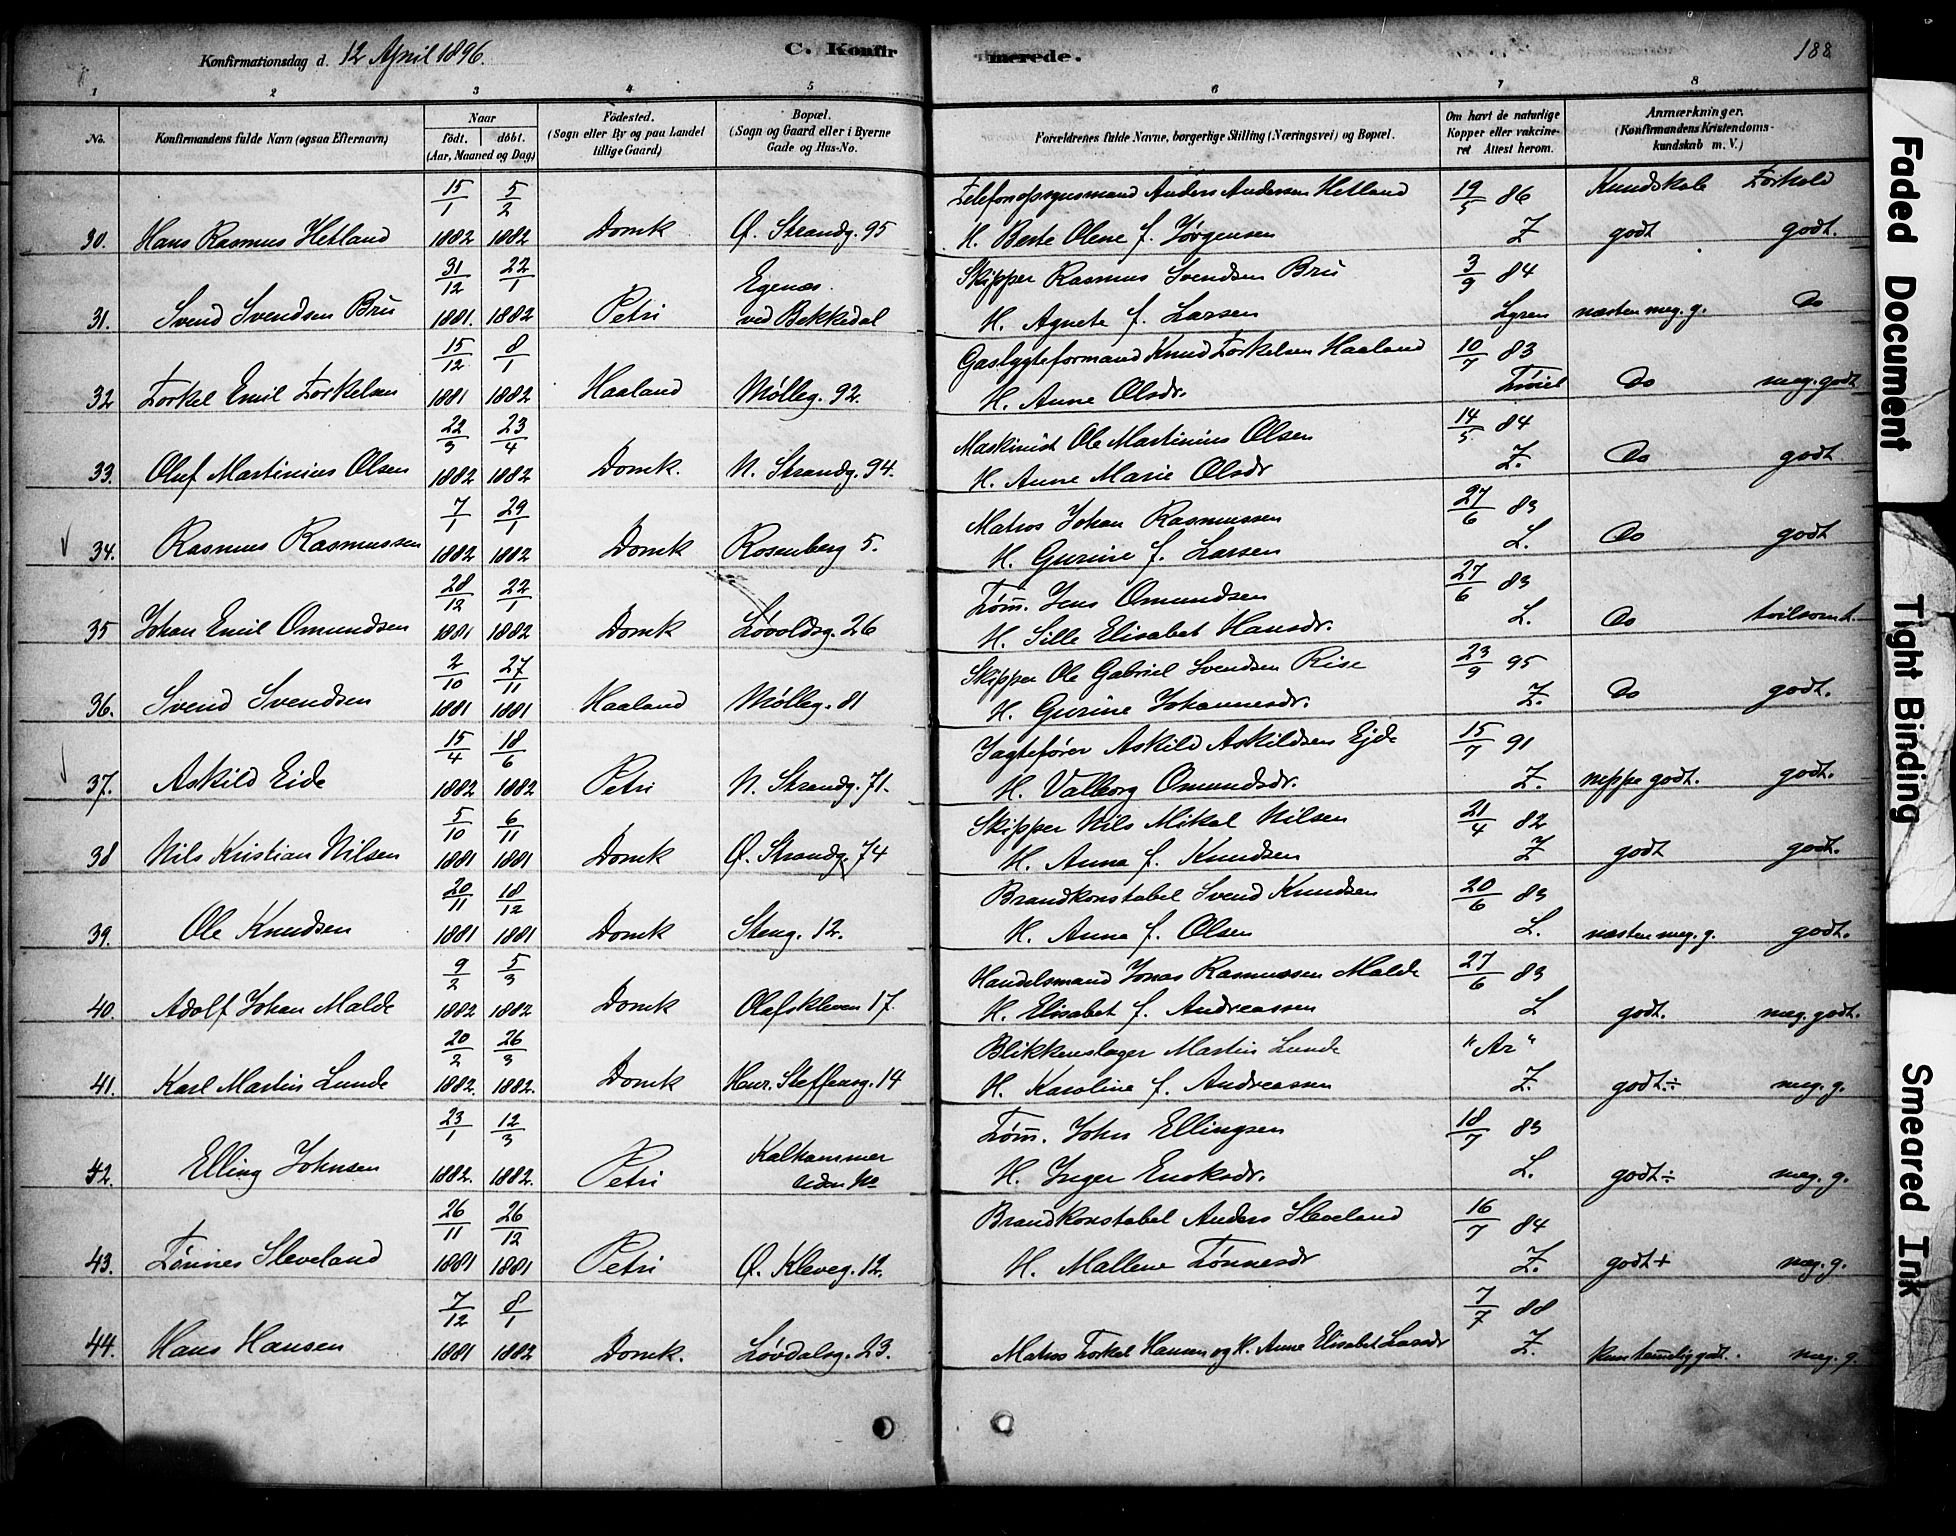 Konfirmationsdag d. 12 April 1896. C. Konfirmerede. 188
1 2 3 4 5 6 7 8
No. Konfirmandens fulde Navn (ogsaa Efternavn) Naar født. døbt. (Aar, Maaned og Dag) Fødested. (Sogn eller By og paa Landet tillige Gaard) Bopæl. (Sogn og Gaard eller i Byerne Gade og Hus-No. Forældrenes fulde Navne, borgerlige Stilling (Næringsvei) og Bopæl. Om havt de naturlige Kopper eller vakcineret Attest herom. Anmærkninger. (Konfirmandens Kristendomskundskab m. V.)
15/1 5/2 Telefonopsynsmand Anders Andersen Hetland 19/5 86 Kundskab Forhold
30. Hans Rasmus Hetland 1882 1882 Domk Ø. Strandg. 95 H. Berte Olene f. Jørgensen Z godt godt.
31/12 22/1 Egenæs. Skipper Rasmus Svendsen Bru 3/9 84
31. Svend Svendsen Bru 1881. 1882 Petri ved Bekkedal H. Agnete f. Larsen Lyren næsten meg. g. Do
15/12 8/1 Gaslygteformand Knud Torkelsen Haaland 10/7 83
32 Torkel Emil Torkelsen 1881 1882 Haaland Mølleg. 92. H. Anne Olsdr. Do meg. godt
22/3 23/4 Maskinist Ole Martinius Olsen 14/5 84
33. Oluf Martinius Olsen 1882 1882 Domk. N. Strandg. 94. H. Anne Marie Olsdr Z. Do godt
7/1 29/1 Matros Johan Rasmussen 27/6 83
34. Rasmus Rasmussen 1882 1882 Domk Rosenberg 5. H. Gurine f. Larsen L. Do godt
28/12 22/1 Tøm. Jens Omundsen 27/6 83
35 Johan Emil Omundsen 1881 1882 Domk Løvoldsg. 26 H. Sille Elisabet Hansdr. L. Do tvilsomt.
2/10 27/11 Skipper Ole Gabriel Svendsen Rise 23/9 95
36. Svend Svendsen 1881 1881 Haaland Mølleg. 81 H. Gurine Johannesdr. Z. Do godt.
15/4 18/6 Jagtefører Askild Askildsen Ejde 15/7 91
37. Askild Eide 1882 1882 Petri N. Strandg. 71. H. Valborg Omundsdr. Z. neppe godt. godt.
5/10 6/11 Skipper Nils Mikal Nilsen 21/4 82
38 Nils Kristian Nilsen 1881 1881 Domk Ø. Strandg. 74 H. Anna f. Knudsen Z godt godt.
20/11 18/12 Brandkonstabel Svend Knudsen 20/6 83
39. Ole Knudsen 1881 1881 Domk Steng. 12. H. Anna f. Olsen L. næsten meg. g. godt.
9/2 5/3 Handelsmand Jonas Rasmussen Malde 27/6 83
40. Adolf Johan Malde 1882 1882 Domk Olafskleven 17. H. Elisabet f. Andreassen L godt. meg. godt.
20/2 26/3 Blikkenslager Martin Lunde "Ar"
41. Karl Martin Lunde 1882. 1882. Domk Henr. Steffensg. 14 H. Karoline f. Andreassen Z. godt.÷ meg. g.
23/1 12/3 Kalhammer Tøm. John Ellingsen 18/7 83
42. Elling Johnsen 1882. 1882. Petri uden No H. Inger Enoksdr. L. godt÷ meg. g.
26/11 26/12 Brandkonstabel Anders Sleveland 16/7 84
43. Tønnes Sleveland 1881 1881 Petri Ø. Kleveg. 12. H. Mallene Tønnesdr Z. godt+ meg. g.
7/12 8/1 7/7 88
44. Hans Hansen 1881 1882 Domk. Løvdalsg. 23. Matros Torkel Hansen og H. Anne Elisabet Larsdr Z. kun temelig godt. meg. g.
Faded Document
Tight Binding
Smeared Ink